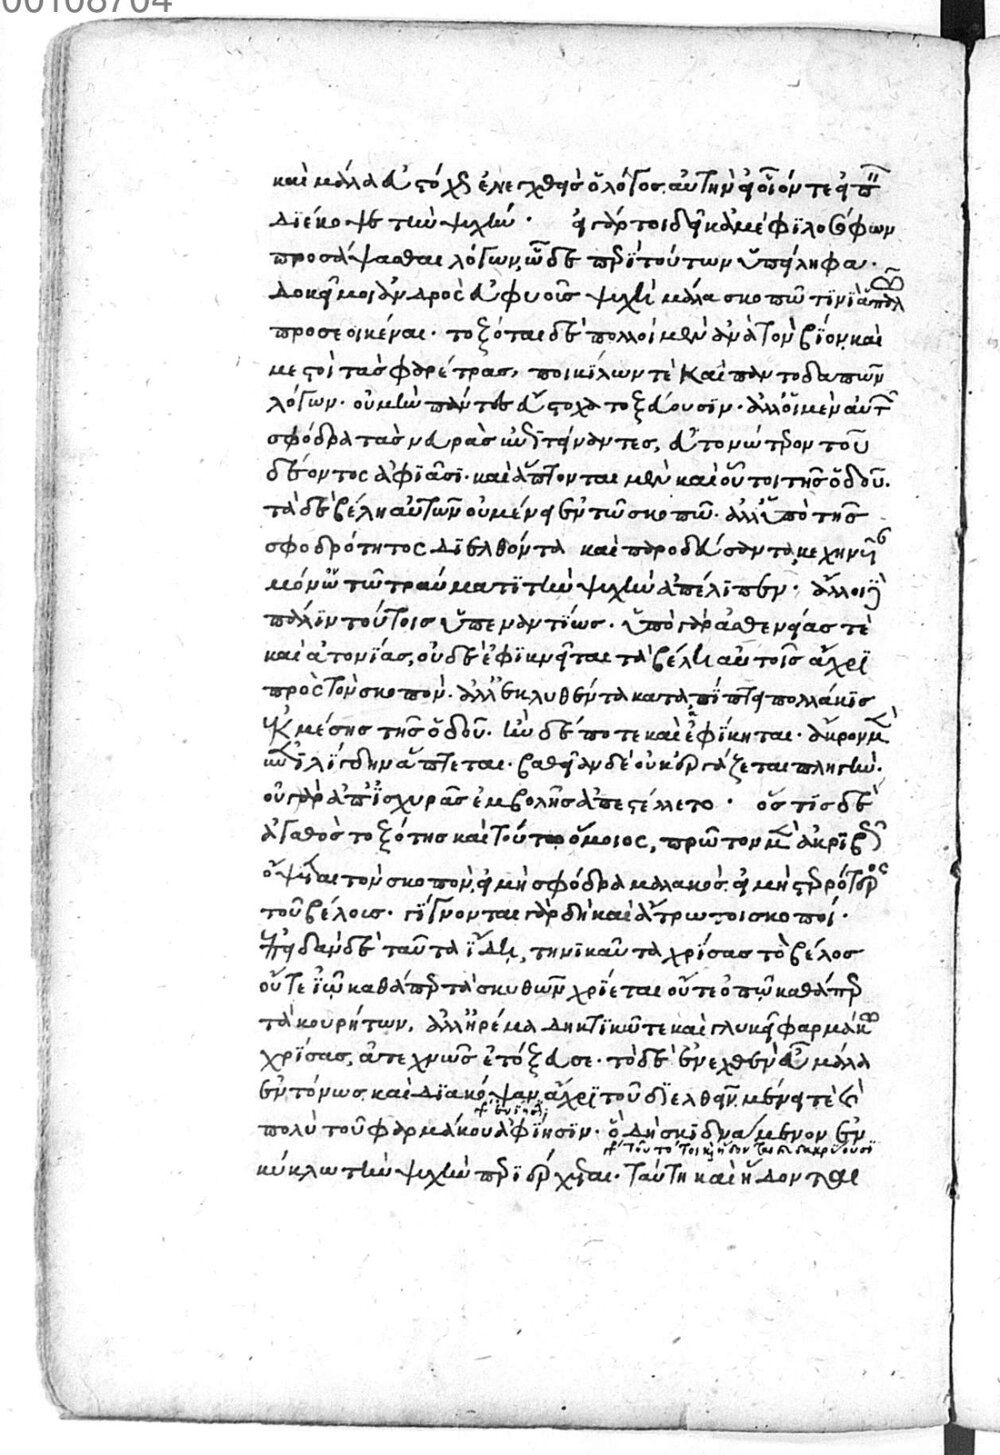 00108704
καὶ μάλα εὐστόχως ἐνεχθεὶς ὁ λόγος αὐτὴν εἰ οἷόν τε εἰπεῖν
διέκοψε τὴν ψυχήν· εἰ γάρ τοι δεῖ κἀμὲ φϊλοσόφων
προσάψασθαι λόγων, ὧδε περὶ τούτων ὑπείληφα·
δοκεῖ μοι ἀνδρὸς εὐφυοῦς ψυχὴ μάλα σκοπῷ τινϊ ἁπαλῷ
προσεοικέναι· τοξόται δὲ πολλοὶ μὲν ἀνὰ τὸν βίον, καὶ
μεστοὶ τὰς φαρέτρας, ποικίλων τὲ καὶ παντοδαπῶν
λόγων· οὐ μὴν πάντες εὔστοχα τοξεύουσϊν· ἀλλ' οἱ μὲν αὐτῶν
σφόδρα τὰς νευρὰς ἐπιτείναντες, εὐτονώτερον τοῦ
δέοντος ἀφιᾶσϊ· καὶ ἅπτονται μὲν καὶ οὗτοι τῆς ὁδοῦ·
τὰ δὲ βέλη αὐτῶν οὐ μένει ἐν τῷ σκοπῷ· ἀλλ' ὑπὸ τῆς
σφοδρότητος διελθόντα καὶ παροδεύσαντα, κεχηνυῖαν
μόνῳ τῷ τραύματι τὴν ψυχὴν ἀπέλιπεν· ἄλλοι δὲ
πάλϊν τούτοις ὑπεναντίως· ὑπὸ γὰρ ἀσθενείας τὲ
καὶ ἀτονίας, οὐδὲ ἐφικνεῖται τὰ βέλη αὐτοῖς ἄχρϊ
πρὸς τὸν σκοπόν· ἀλλ' ἐκλυθέντα καταπίπτει πολλάκϊς
ἐκ μέσης τῆς ὁδοῦ· ἢν δέ ποτε καὶ ἐφίκηται· ἄκρον μὲν
ἐπιλίγδην ἅπτεται· βαθεῖαν δὲ οὐκ ἐργάζεται πληγήν·
οὐ γὰρ ἀπ' ἰσχυρᾶς ἐμβολῆς ἀπεστέλλετο· ὅστϊς δὲ
ἀγαθὸς τοξότης καὶ τούτῳ ὅμοιος, πρῶτον μὲν ἀκριβῶς
ὄψεται τὸν σκοπὸν, εἰ μὴ σφόδρα μαλακὸς. εἰ μὴ στερρότερος
τοῦ βέλους· γίγνονται γὰρ δὴ καὶ ἄτρωτοι σκοποί·
ἐπειδὰν δὲ ταῦτα ἴδῃ, τηνικαῦτα χρίσας τὸ βέλος
οὔτε ἰῷ καθάπερ τὰ σκυθῶν χρίεται οὔτε ὀπῷ καθάπερ
τὰ κουρήτων, ἀλλ' ἠρέμα δηκτϊκῷ τε καὶ γλυκεῖ φαρμάκῳ
χρίσας, ἀτεχνῶς ἐτόξευσε· τὸ δὲ ἐνεχθὲν εὖ μάλα
ἐντόνως καὶ διακόψαν ἄχρϊ τοῦ διελθεῖν, μένει τὲ καὶ
πολὺ τοῦ φαρμάκου ἀφίησϊν· ὃ δὴ σκιδνάμενον ἐν
κύκλῳ τὴν ψυχὴν περιέρχεται· ταύτῃ καὶ ἥδονται